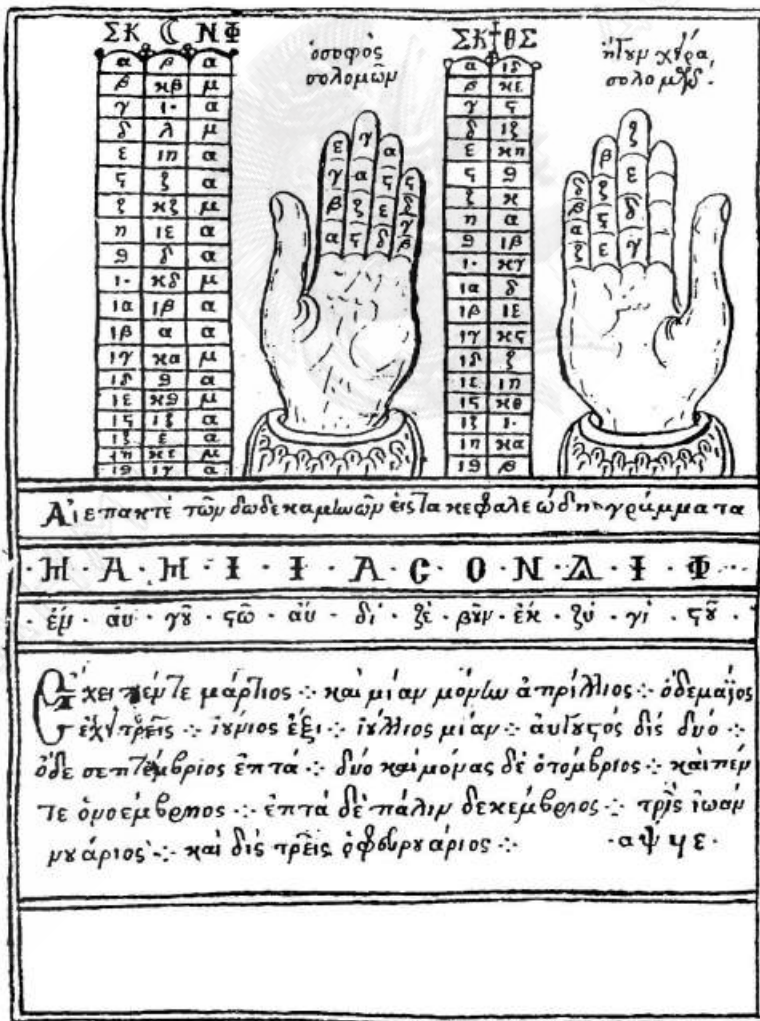 ΣΚ ☾ ΝΦ
α β α
β κβ μ
γ ι· α
δ λ μ
ε ιη α
ϛ ζ α
ζ κζ μ
η ιε α
θ δ α
ι· κδ μ
ια ιβ α
ιβ α α
ιγ κα μ
ιδ θ α
ιε κθ μ
ιϛ ιζ α
ιζ ε α
ιη κε μ
ιθ ιγ α
ὁσοφὸς
σολομῶν
ε γ α
γ α ϛ ϛ
β ζ ε δ
γ
α ϛ δ β
ΣΚ ΘΣ
α ιδ
β κε
γ ϛ
δ ιζ
ε κη
ϛ θ
ζ κ
η α
θ ιβ
ι· κγ
ια δ
ιβ ιε
ιγ κϛ
ιδ ζ
ιε ιη
ιϛ κθ
ιζ ι·
ιη κα
ιθ β
χεῖρα
ζ
β
ε
δ ζ
β
α ϛ δ
ζ ε γ
Αἱ επακτὲ τῶν δωδεκαμίωῶν εἰς τα κεφαλεώδη γράμματα
· Η · Α · Η · Ι · Ι · Α · С · Ο · Ν · Δ · Ι · Φ ·
· ἐμ · αυ · γȣ · ϛω · αὐ · δι · ζὲ · βȣν · ἐκ · ζύ · γὶ · ϛȣ ·
Ἔχει πέντε μάρτιος ⁘ καὶ μίαν μόνω ἀπρίλλιος ⁘ ὁδεμαϊος
ἐχ τρεῖς ⁘ ιούνιος ἑξι ⁘ ιούλλιος μίαν ⁘ αυγȣϛος δὶς δύο ⁘
ὁδε σεπτέμβριος ἑπτά ⁘ δύο καὶ μόνας δὲ ὁτόμβριος ⁘ καὶ πέν
τε ὁνοέμβριος ⁘ ἑπτά δὲ πάλιν δεκέμβριος ⁘ τρὶς ἰωαν
νȣάριος ⁘ καὶ δὶς τρεῖς ὁφευρȣάριος ⁘ · αψϟε ·